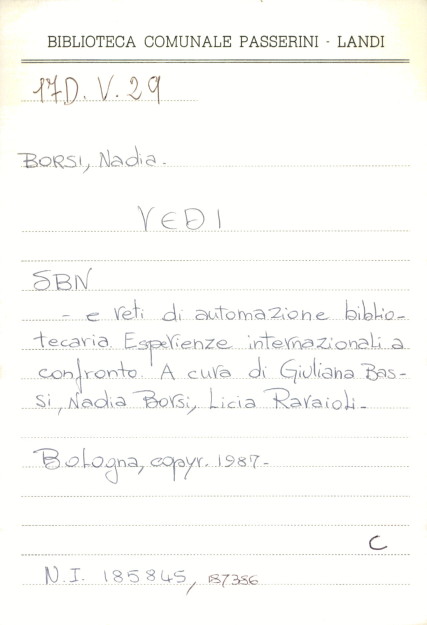 BIBLIOTECA COMUNALE PASSERINI - LANDI
17D. V. 29
BORSI, Nadia.
VEDI
SBN
- e reti di automazione biblio-
tecaria. Esperienze internazionali a
confronto. A cura di Giuliana Bas-
si, Nadia Borsi, Licia Ravaioli.-
Bologna, copyr. 1987.-
C
N.I. 185845, 187386